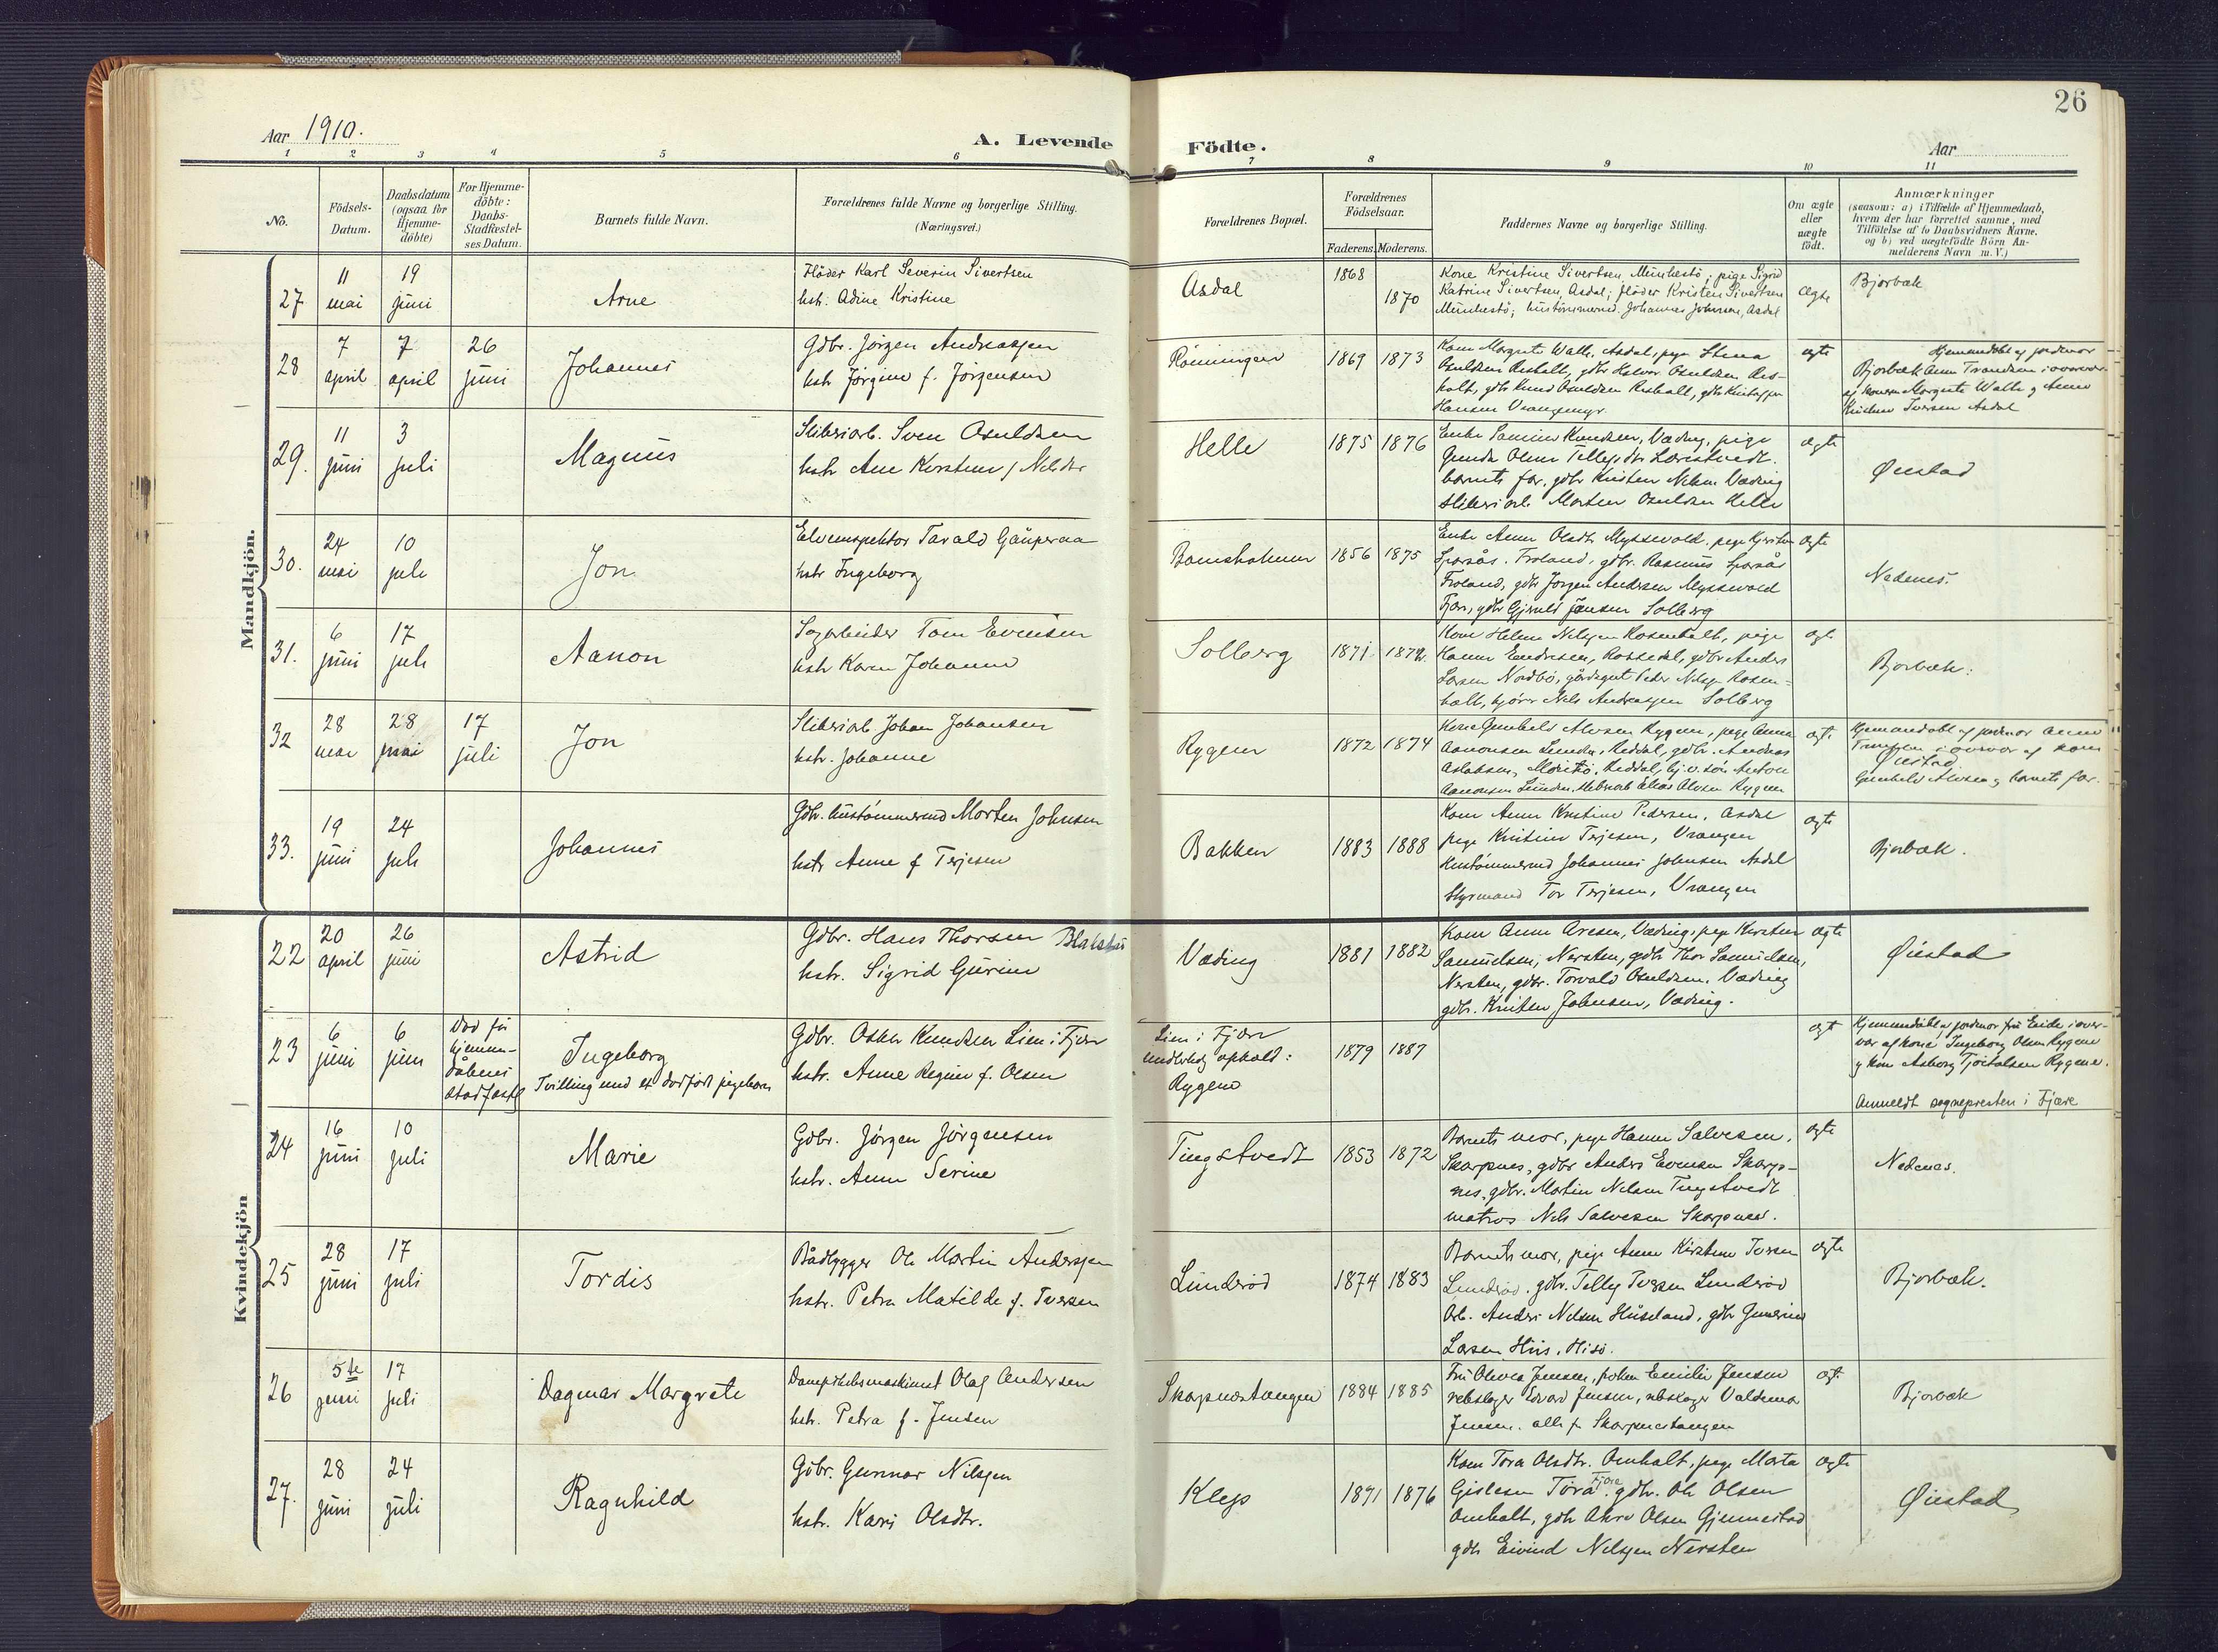 26
Aar 1910.
A. Levende Födte.
Aar
1 2 3 4 5 6 7 8 9 10 11
No.
Födsels-
Datum.
Daabsdatum
(ogsaa for
Hjemme-
döbte)
For Hjemme-
döbte:
Daabs-
Stadfæstel-
ses Datum.
Barnets fulde Navn.
Forældrenes fulde Navne og borgerlige Stilling.
(Næringsvei.)
Forældrenes Bopæl.
Forældrenes
Födselsaar.
Faderens.
Moderens.
Faddernes Navne og borgerlige Stilling.
Om ægte
eller
uægte
födt.
Anmærkninger
(saasom: a) i Tilfælde af Hjemmedaab,
hvem der har forrettet samme, med
Tilföielse af to Daabsvidners Navne.
og b) ved uægtefödte Börn An-
melderens Navn m. V.)
Mandkjön.
27
11
mai
19
juni
Arne
Flöder Karl Severin Sivertsen
hstr. Adine Kristine
Asdal
1868
1870
Kone Kristine Sivertsen, pige Sigrid
Katrine Sivertsen, Asdal; flöder Kristen Sivertsen
Johannes Johnsen, Asdal
ægte
Bjorbæk
28
7
april
7
april
26
juni
Johannes
Gdbr. Jörgen Andreassen
hstr Jörgine f. Jörgensen
Rönningen
1869
1873
Kone Margrete Walle, Asdal, pige Stena
Osuldsen Resholt, gdbr Halvor Osuldsen Res-
holt, gdbr Knud Osuldsen Resholt, gdbr
Hansen Vrangemyr.
ægte
Hjemmedöbt af jordmor
Bjorbæk Anne i overvær
af konerne Margrete Walle og Anne
Kirstine Iversen Asdal
29.
11
juni
3
juli
Magnus
Sliberiarb. Sven Osuldsen
hstr Ane Kirstine f Nilsdtr
Helle
1875
1876
Enke Knudsen, Væding, pige
Gunda Olsen
barnets far, gdbr Kristen Nilsen Væding
sliberiarb. Morten Osuldsen Helle
ægte
Øiestad
30.
24
mai
10
juli
Jon
Elveinspektor Tarald Gauperaa
hstr Ingeborg
Bomsholmen
1856
1875
Enke Anne Olsdtr Myssevold, pige
Lovsås, Froland, gdbr. Rasmus
Froland, gdbr Jörgen Andersen Myssevold
Fjære, gdbr Gjeruld Jensen Solberg
ægte
Nedenes.
31.
6
juni
17
juli
Aanon
Sagarbeider Tom Evensen
hstr Karen Johanne
Solberg
1871
1872.
Kone Helene Nilsen Rosenholt, pige
Hanna Endresen, Rossedal, gdbr Anders
Larsen Nordbö, gårdsgut Peder Nilsen Rosen-
holt, Nils Andreassen Solberg
ægte
Bjorbæk.
32
28
mai
28
mai
17
juli
Jon
Sliberiarb. Johan Johansen
hstr. Johanne
Rygene
1872
1874
Kone Gunhild Alvsen Rygene, pige Anna
Aanonsen Lunden, Reddal, gdbr. Andreas
Aslaksen, Reddal, Anton
Aanonsen Lunden, sliberiarb Elias Olsen Rygene
ægte
Hjemmedöbt af jordmor Anne
i overvær af kone
Øiestad
Gunhild Alvsen og barnets far.
33.
19
juni
24
juli
Johannes
Gdbr. hustömmermd Morten Johnsen
hstr Anne f Terjesen
Bakken
1883
1888
Kone Anne Kristine Pedersen, Asdal
pige Kristine Terjesen, Vrangen
Hustömmermd Johannes Johnsen Asdal
Styrmand Tor Terjesen, Vrangen
ægte
Bjorbæk.
Kvindekjön
22
20
april
26
juni
Astrid
Gdbr. Hans Thorsen
hstr. Sigrid Gurine
Væding
1881
1882
Kone Anne Aresen, Væding, pige Kirsten
Samuelsen, Nersten, gdbr Thor Samuelsen,
Nersten, gdbr. Torvald Osuldsen, Væding
gdbr. Kristen Johnsen, Væding.
ægte
Øiestad
23
6
juni
6
juni
Död för
hjemme-
dåbens
stadfæst
Ingeborg
Tvilling med et dødfödt pigebarn
Gdbr. Osker Knudsen Lien i Fjære
hstr. Anne Regine f. Olsen
Lien i Fjære
midlertidig ophold:
Rygene
1879
1887
ægt
Hjemmedöbt af jordmor fru Eide i over-
vær af kone Ingeborg Olsen Rygene
og kone Asborg Rygene.
Anmeldt sognepresten i Fjære
24
16
juni
10
juli
Marie
Gdbr. Jörgen Jörgensen
hstr. Anne Serine
Tingstvedt
1853
1872
Barnets mor, pige Hanne Salvesen,
Skarpnes, gdbr Anders Evensen Skarp-
nes, gdbr. Martin Nilsen Tingstvedt
matros Nils Salvesen Skarpnes.
ægte
Nedenes.
25
28
juni
17
juli
Tordis
Bådbygger Ole Martin Anderssen
hstr. Petra Matilde f. Iversen
Lunderöd
1874
1883
Barnets mor, pige Anne Kirstine Iversen
Lunderöd, gdbr. Tellef Iversen Lunderöd
Arb. Anders Nilsen Huseland, gdbr
Larsen Hisö.
ægte
Bjorbæk.
26
5te
juni
17
juli
Dagmar Margrete
Dampskibsmaskinist Olaf Andersen
hstr. Petra f. Jensen
Skarpnestangen
1884
1885
Fru Olivia Jensen, fröken Emilie Jensen
rebslager Edvard Jensen, rebslager Valdemar
Jensen, alle fr Skarpnestangen
ægt
Bjorbæk
27.
28
juni
24
juli
Ragnhild
Gdbr. Gunnar Nilssen
hstr. Kari Olsdtr.
Klep
1871
1876
Kone Tora Olsdtr. Omholt, pige Marta
Gislesen Tora Fjære, gdbr. Ole Olsen
Omholt, gdbr Olsen Gjennestad
gdbr Eivind Nilssen Nersten
ægte
Øiestad